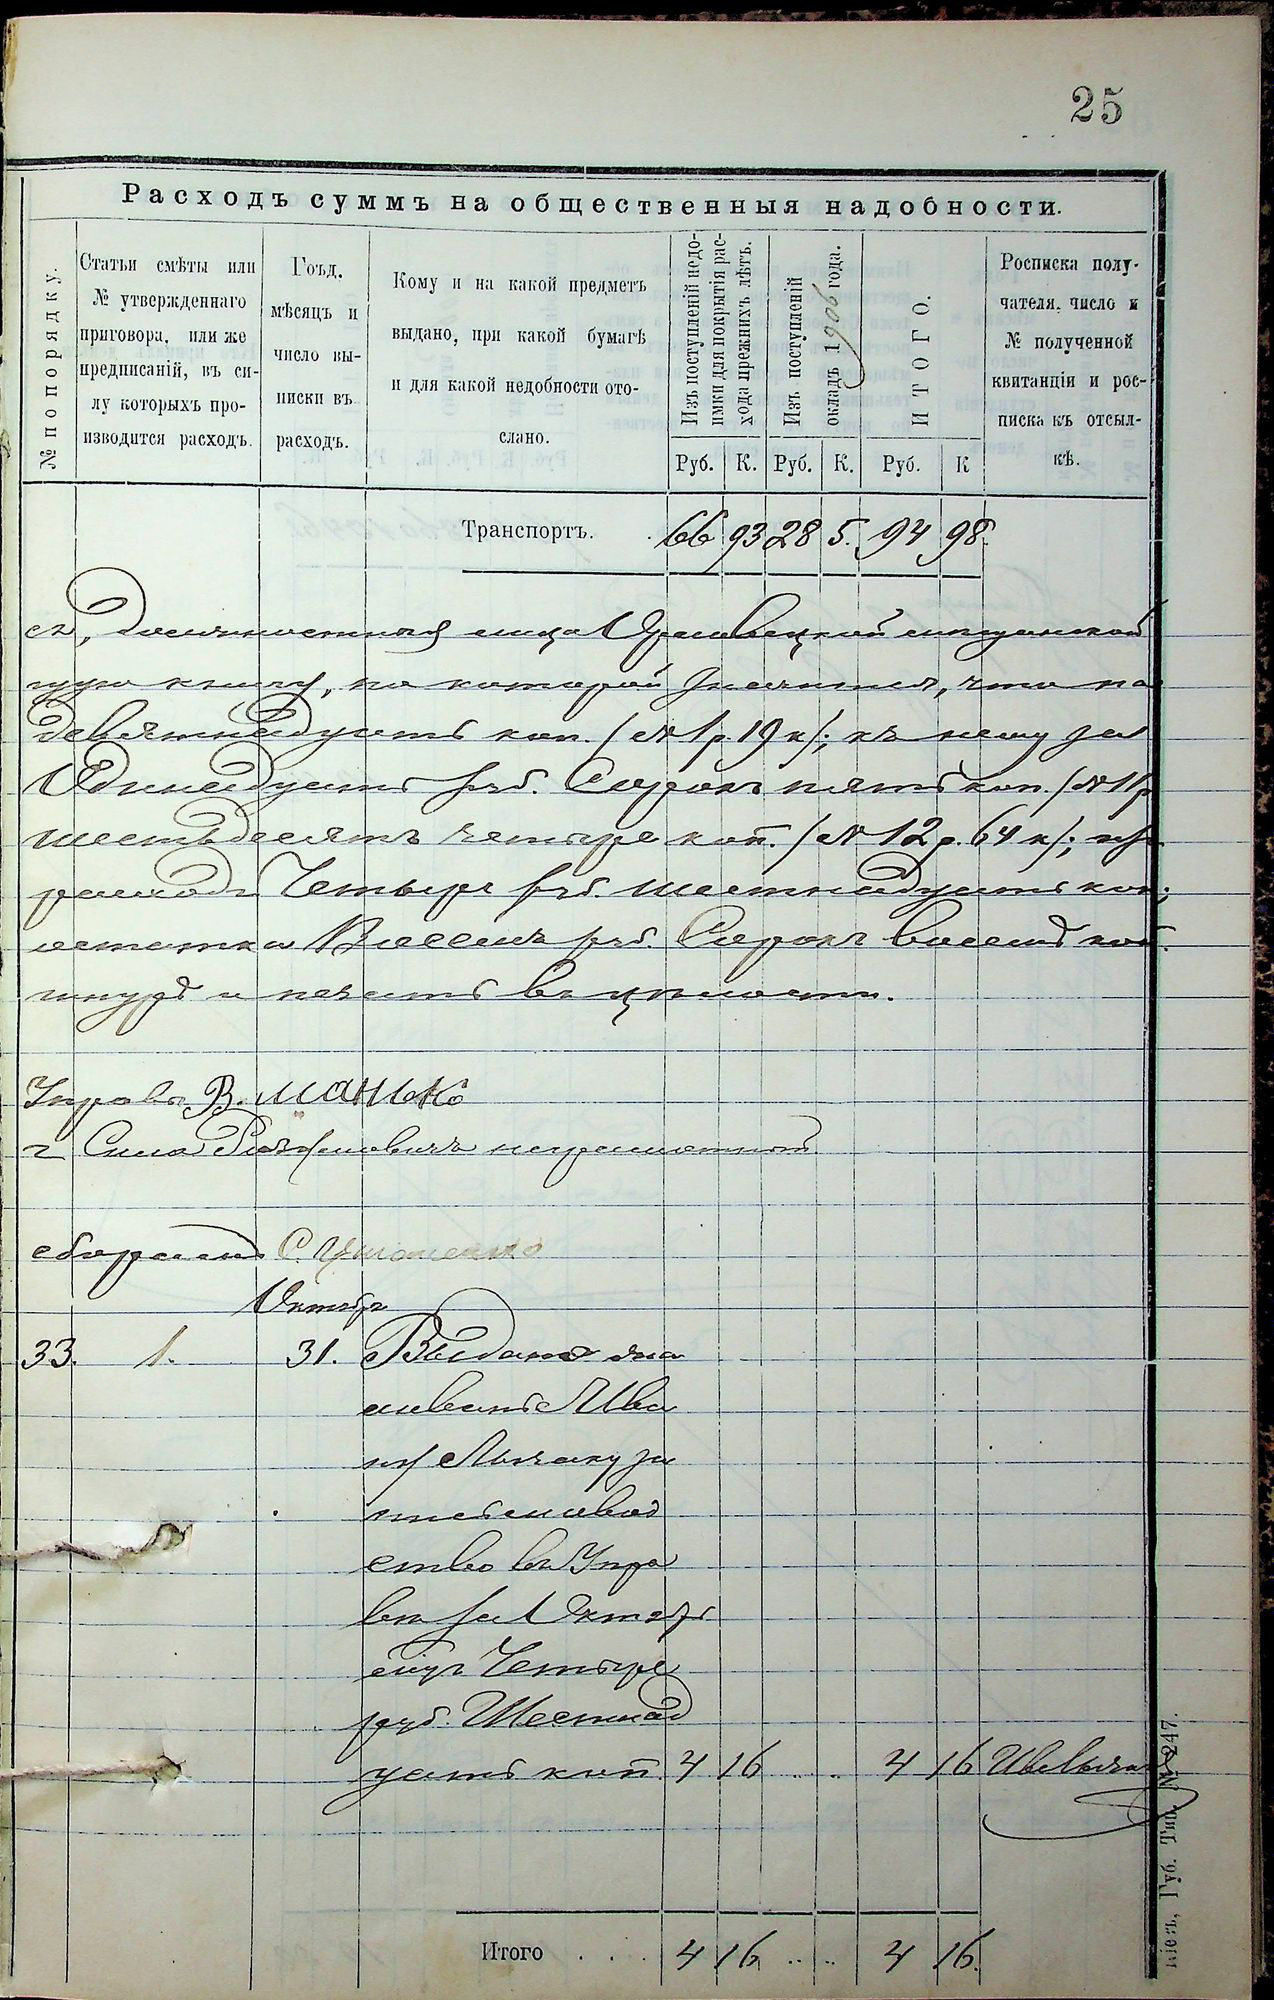 25
Расходъ суммъ на общественныя надобности.
№ по порядку.
Статьи смѣты или № утвержденнаго приговора, или же предписаній, въ силу которыхъ производится расходъ.
Годъ, мѣсяцъ и число выписки въ расходъ.
Кому и на какой предметъ выдано, при какой бумагѣ и для какой недобности отослано.
Изъ поступленій недоимки для покрытія расхода прежнихъ лѣтъ.
Изъ поступленій окладъ 1906 года.
ИТОГО.
Росписка получателя, число и № полученной квитанціи и росписка къ отсылкѣ.
Руб. К. Руб. К. Руб. К
Транспортъ. 66 93 28 5. 94 98.
должностныя лица мѣщанской
книгу, по которой значится, что по
девятнадцать коп. (№ 1 р 19 к); къ нему за
Одинадцать руб. Сорокъ пять коп. (№ 11 р
шестьдесятъ четыре коп. (№ 12 р. 64 к);
расходъ Четыре руб. шестнадцать коп.
остатка Восемь руб. Сорокъ восемь коп.
шнуръ и печать въ цѣлости.
Управы В. Манько
Сила неграмотный
С.
Октябр
33. 1. 31. Выдано
Ива
ну Лычаку за
письмовод
ство въ Упра
вѣ за Октябрь
мѣсяцъ Четыре
руб. Шестнад
цать коп. 4 16 .. .. 4 16 Ив Лычак
Итого . . . 4 16 .. .. 4 16.
Кіевъ, Губ. Тип. № 247.